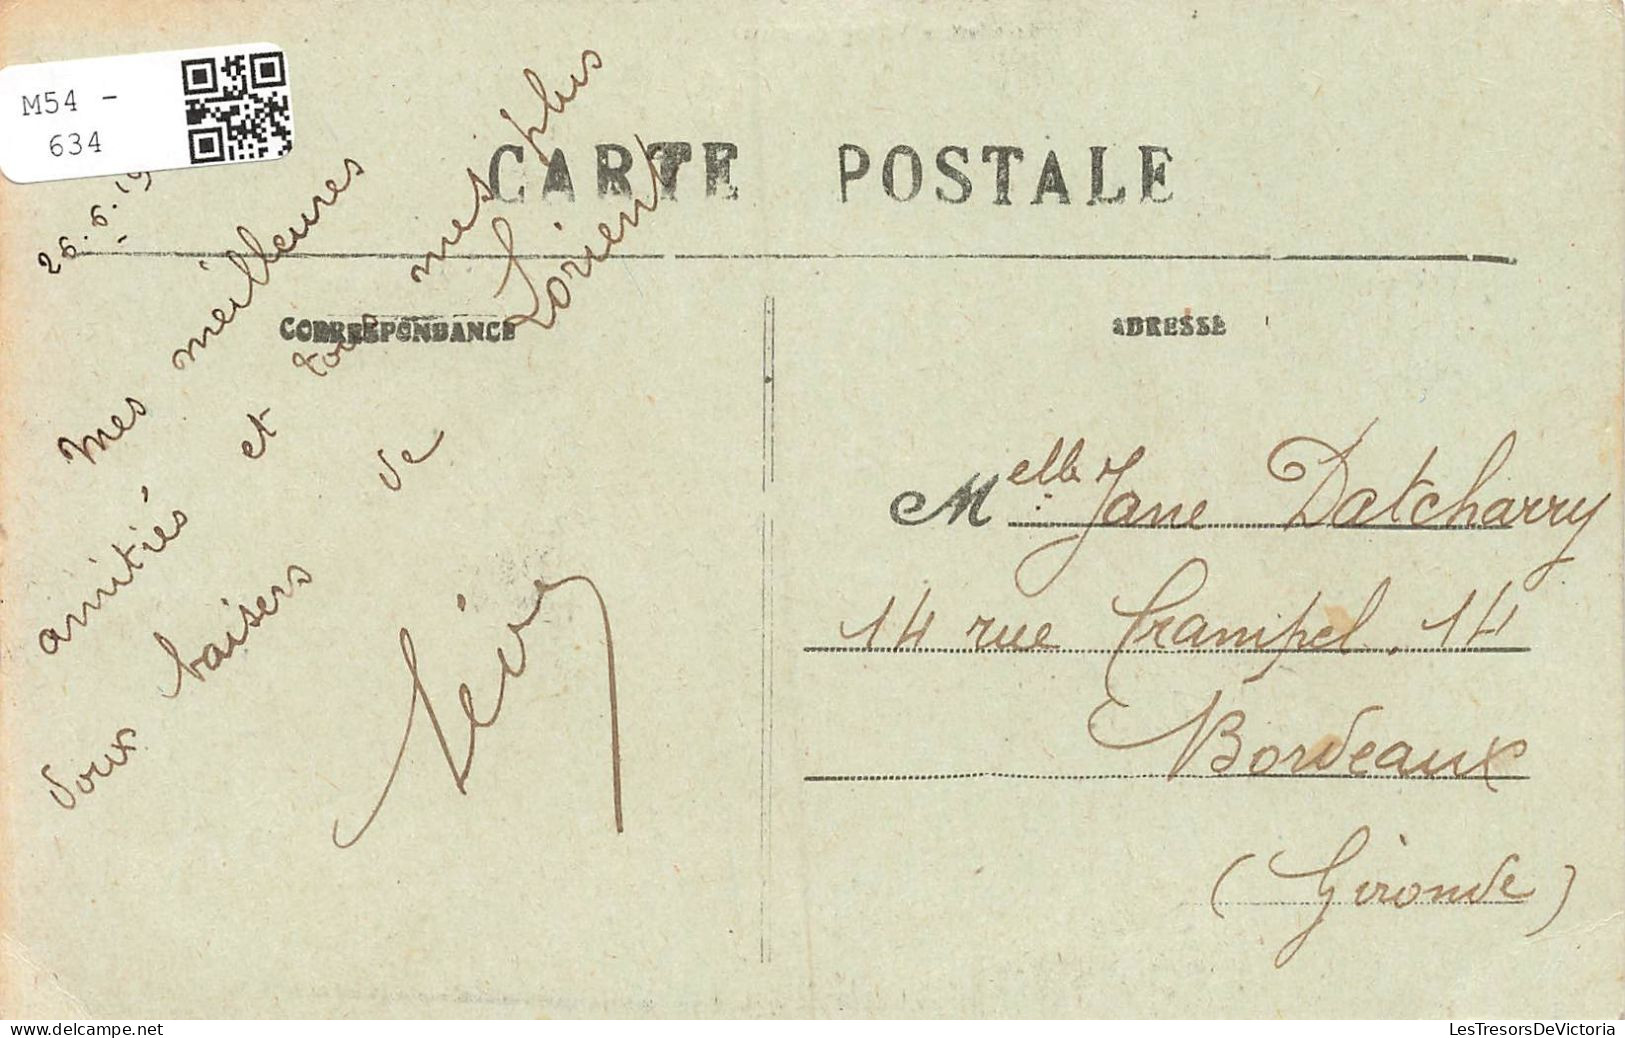 M54 -
634
26.6.19
CARTE POSTALE
CORRESPONDANCE
ADRESSE
Mes meilleures
amitiés et tous mes plus
doux baisers de Lorient
Melle Jane Datcharry
14 rue Crampel. 14
Bordeaux
(Gironde)
LesTresorsDeVictoria
delcampe.net